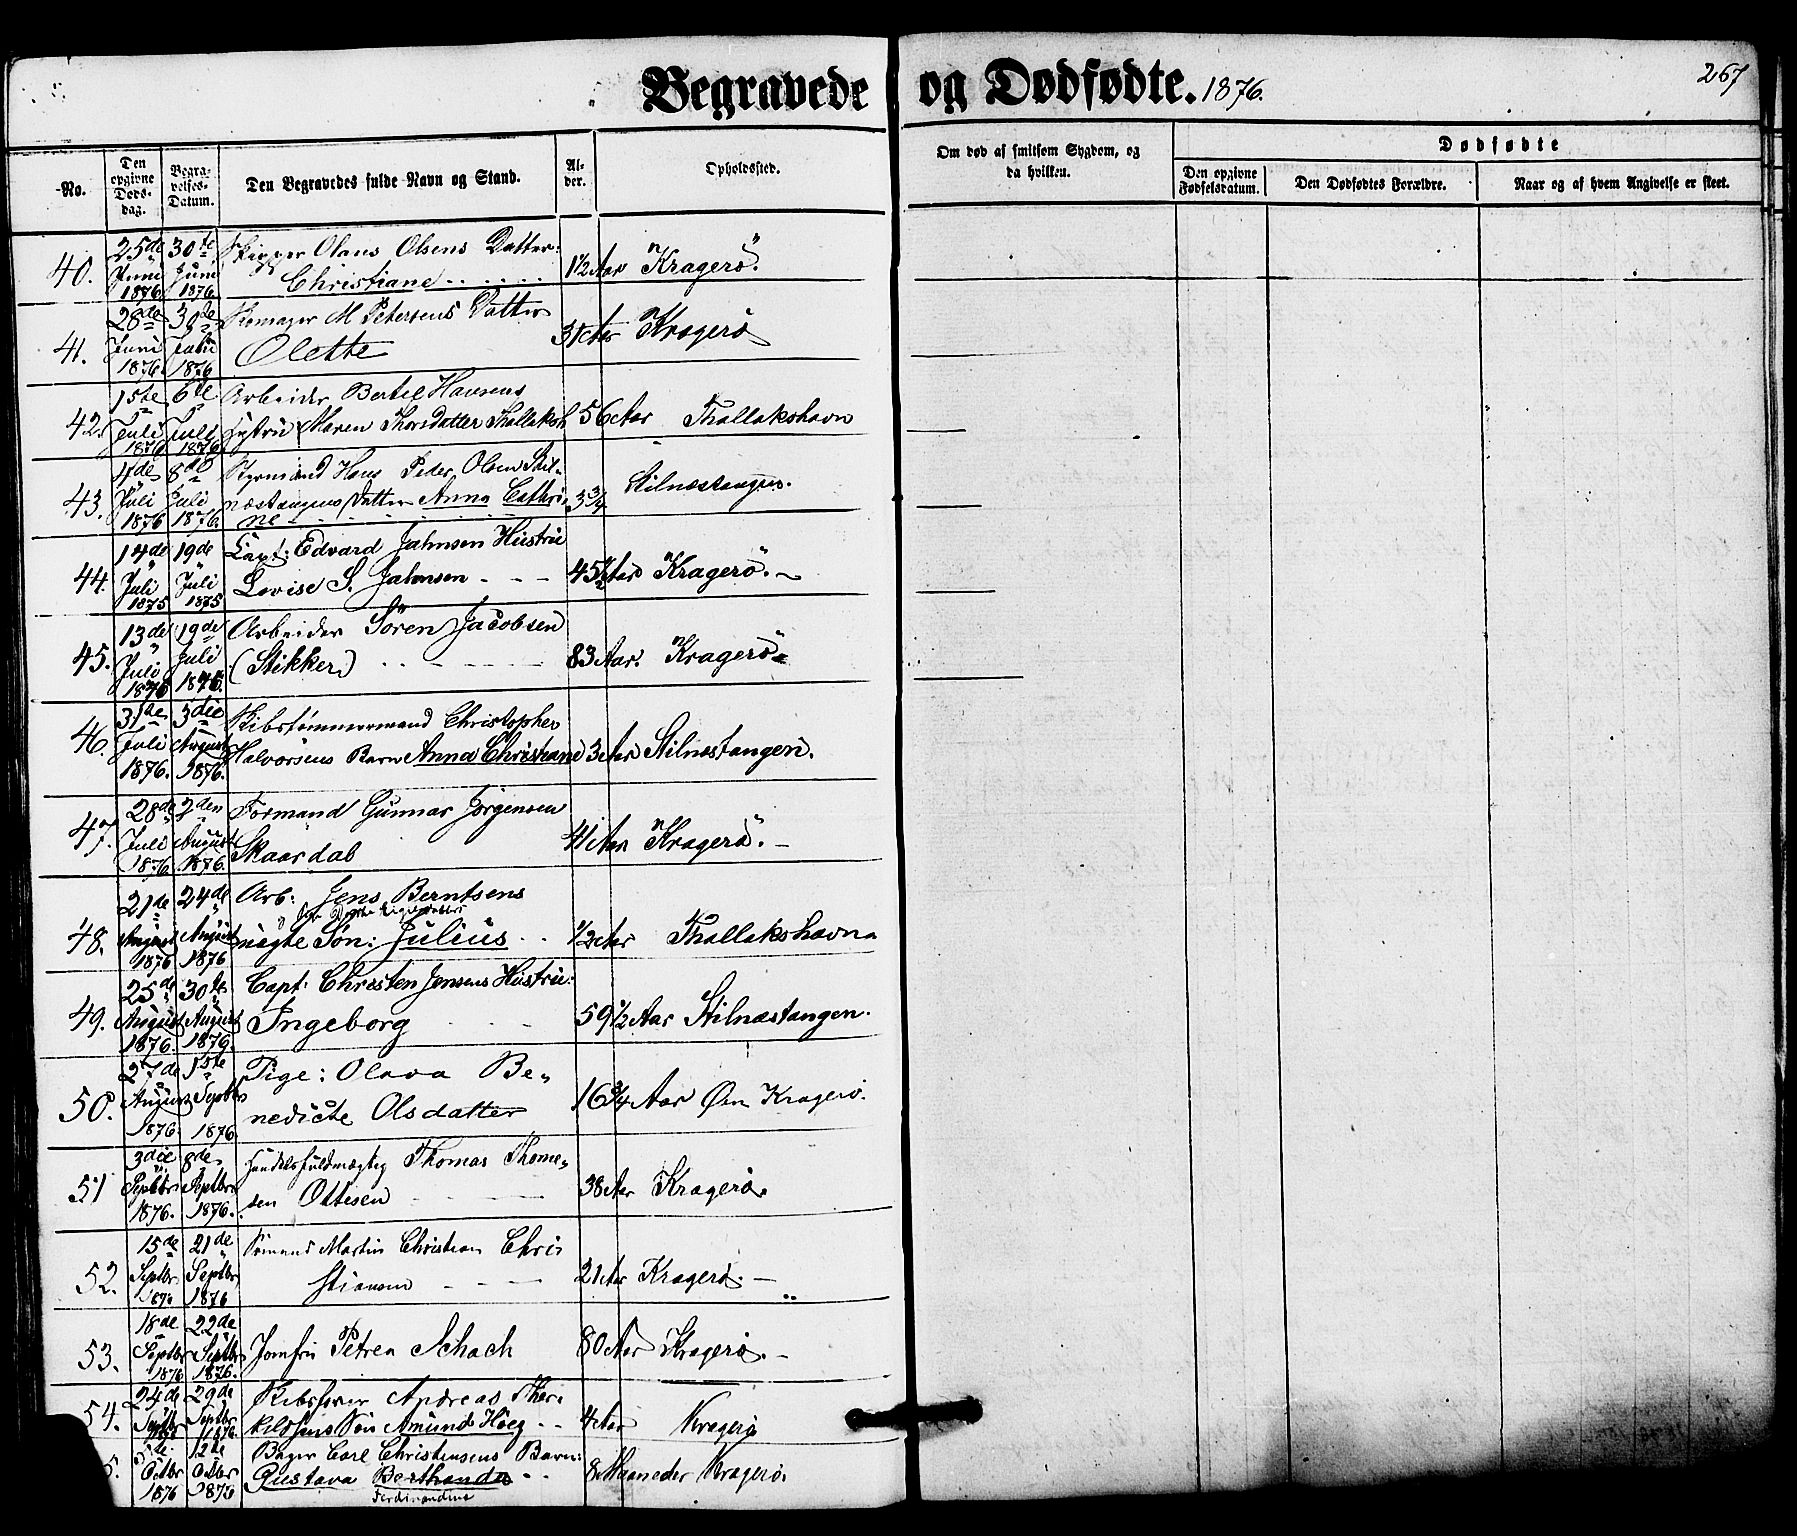 Begravede og Dødfødte. 1876.
267
No.
Den opgivne Døds-dag.
Begra-velses-Datum.
Den Begravedes fulde Navn og Stand.
Al-der.
Opholdssted.
Om død af smitsom Sygdom, og da hvilken.
Dødfødte
Den opgivne Fødselsdatum.
Den Dødfødtes Forældre.
Naar og af hvem Angivelse er skeet.
40. 25de Juni 1876 30te Juni 1876. Skipper Olaus Olsens Datter:
Christiane 1½ Aar Kragerö.
41. 28de Juni 1876. 30de 1876 M Petersens Datter
Olette Aar Kragerö
42. 1ste Juli 1876 6te Juli 1876. Arbeider Bertel Hansens
Hustru Maren Thorsdatter Thallaksh 56 Aar Thallakshavn
43. 4de Juli 1876 8de Juli 1876. Styrmand Hans Peder Olsen Stil-
nestangens Datter Anna Cathri-
ne 3¾ Stilnestangen.
44. 14de Juli 1875 19de Juli 1875 Capt: Edvard Jahnsen Hustrue
Lovise S. Jahnsen 45½ Aar Kragerö.
45. 13de Juli 1876 19de Juli 1876. Arbeider Sören Jacobsen
(Stikker) 83 Aar. Kragerö
46. 31te Juli 1876. 3die August 1876. Skibstömmermand Christopher
Halvorsens Barn Anna Christiane 3 Aar Stilnestangen.
47. 28de Juli 1876. 2den August 1876. Formand Gunnar Jörgensen
Skaardal 41 Aar Kragerö.
48. 21de August 1876 24de August 1876 Arb: Jens Berntsens
uægte Sön: Julius ½ Aar Thallakshavn
49. 25de August 1876. 30te August 1876. Capt: Christen Jensens Hustrue:
Ingeborg 59½ Aar Stilnestangen.
50. 27de August 1876. 1ste Septbr 1876. Pige: Olava Be-
nedicte Olsdatter 16¾ Aar Öen Kragerö.
51 3die Septbr 1876. 8de Septbr 1876. Handelsfuldmægtig Thomas Thome-
sen Ottesen 38 Aar Kragerö.
52. 15de Septbr 1876 21de Septbr 1876 Sömand Martin Christian Chri
stiansen 21 Aar Kragerö.
53. 18de Septbr 1876 22de Septbr 1876. Jomfru Petrea Schach 80 Aar Kragerö.
54. 24de Septbr 29de Septbr 1876. Skibsförer Andreas Ther
kelsens Sön Amund Höeg 4 Aar Kragerö
5. 5te Octbr 1876 12te Octbr 1876 Bager Carl Christensens Barn:
Gustava Berthande 8 Maaneder Kragerö.
Ferdinandine